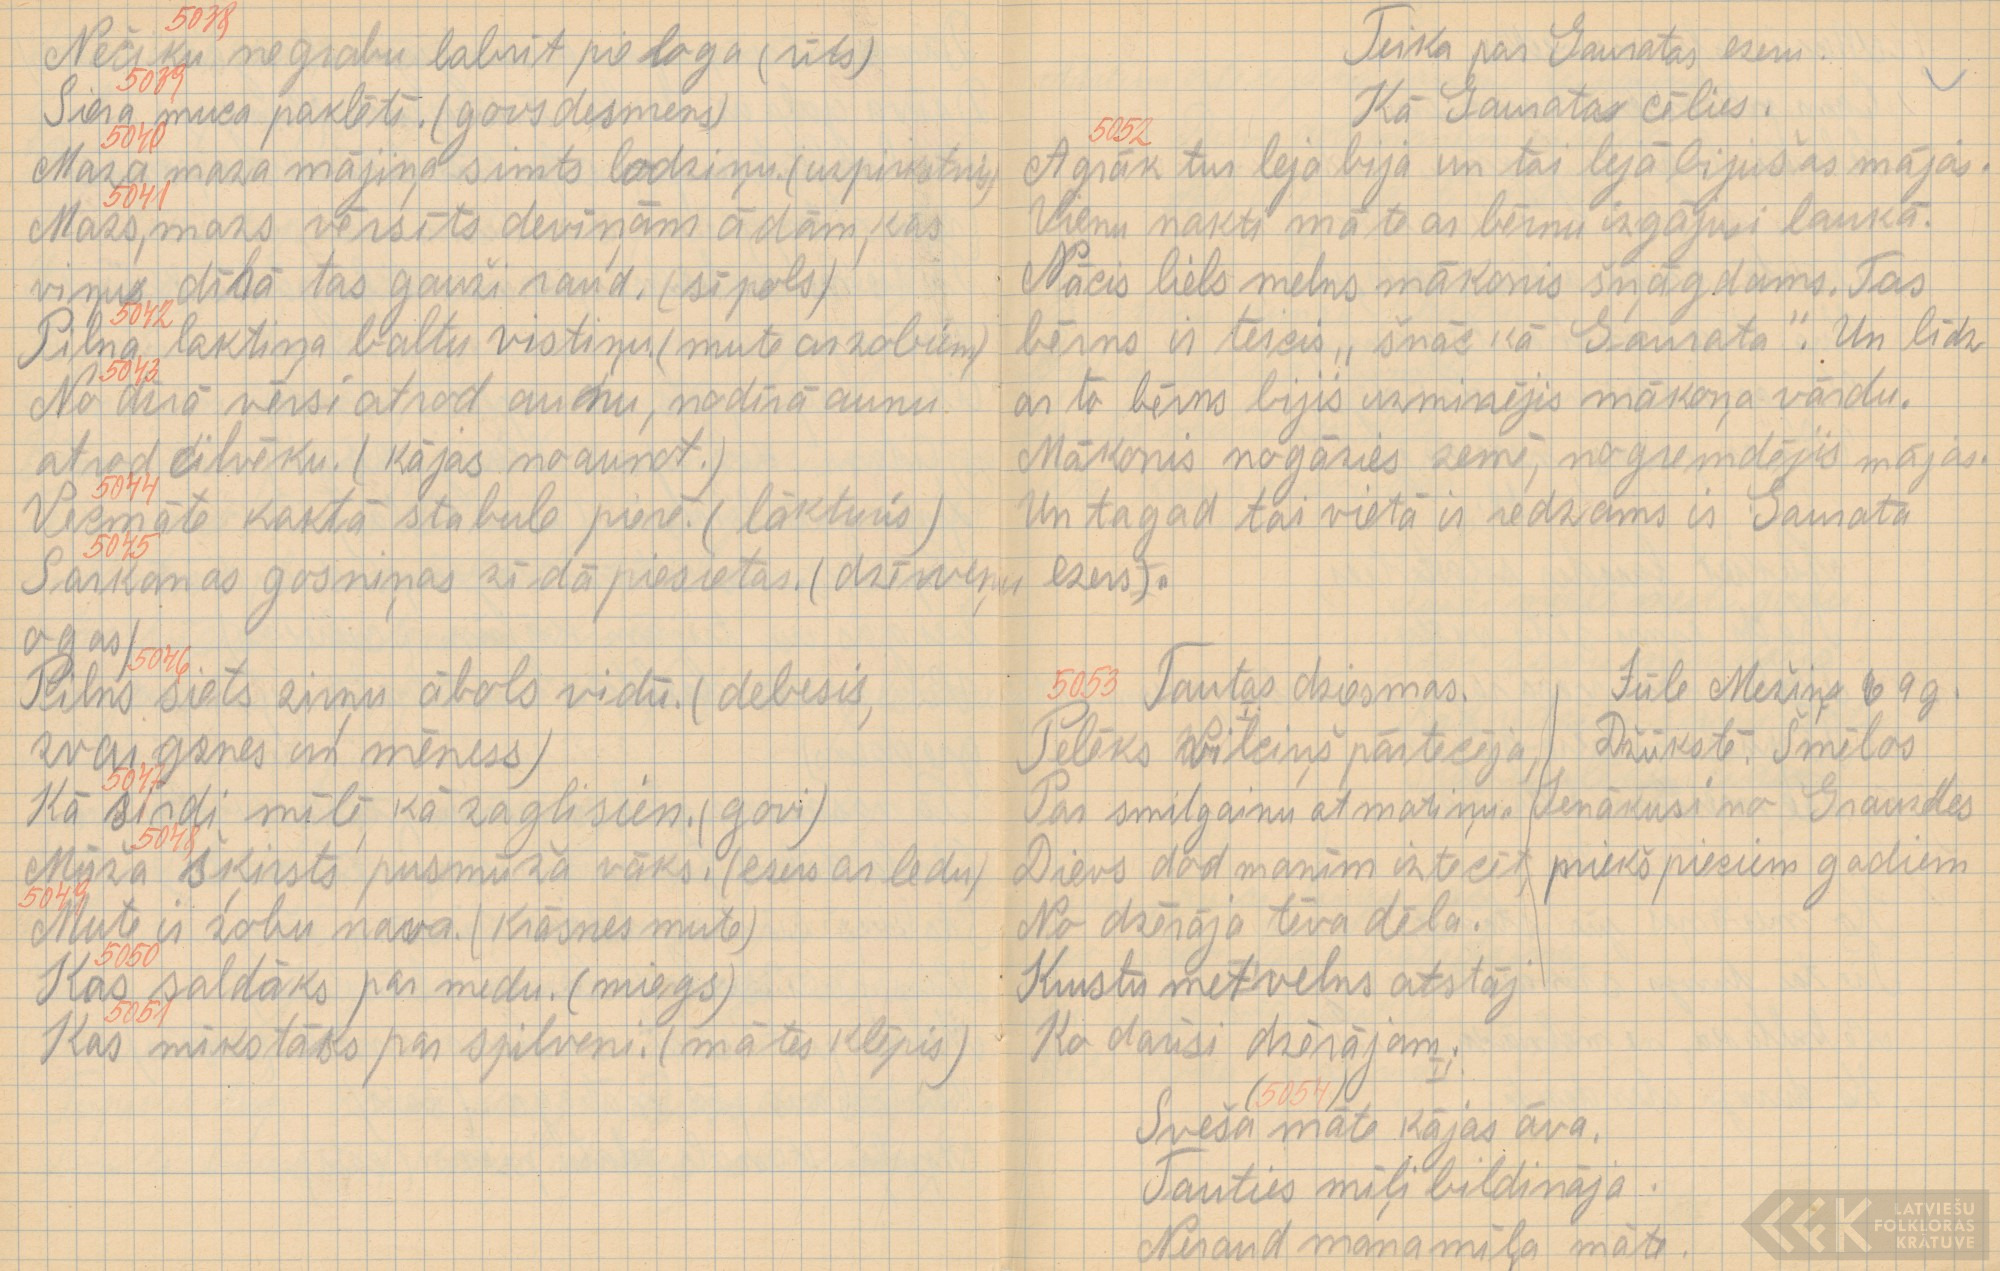 5038
Nečiku negrabu labrīt pie loga (rīts)
5039
Siera muca paklētē. (govs desmens)
5040
Maza, maza mājiņa simts lodziņu. (uzpirkstnis)
5041
Mazs, mazs vērsīts deviņām ādām, kas
viņu dīrā tas gauži raud. (sīpols)
5042
Pilna laktiņa baltu vistiņu (mute ar zobiem)
5043
No dirā vērsi atrod aunu, nodīrā aunu
atrod cilvēku. (kājas noaunot.)
5044
Vecmāte kaktā stabule pierē. (lākturis)
5045
Sarkanas gosniņas zīdā piesietas. (dzērveņu
ogas)
5046
Pilns siets zirņu ābols vidū. (debesis,
zvaigznes un mēness)
5047
Kā sirdi mīlē, kā zagli sien. (govi)
5048
Mūža šķirsts pusmūža vāks. (ezers ar ledu)
5049
Mute ir zobu nava. (Krāsnes mute)
5050
Kas saldāks par medu. (miegs)
5051
Kas mīkstāks par spilveni. (mātes klēpis)
Teika par Gauratas ezeru.
Kā Gauratas cēlies.
5052
Agrāk tur leja bija un tai lejā bijušas mājas.
Vienu nakti māte ar bērnu izgājusi laukā.
Nācis liels melns mākonis šņāgdams. Tas
bērns ir teicis „šnāc kā Gaurata". Un līdz
ar to bērns bijis uzminējis mākoņa vārdu.
Mākonis nogāzies zemē, nogremdējis mājas.
Un tagad tai vietā ir redzams is Gaurata
ezers).
5053 Tautas dziesmas.
I
Pelēks vilciņš pārtecēja,
Par smilgainu atmatiņu.
Dievs dod manim iztecēt,
No dzērāja tēva dēla.
Krustu met velns atstāj
Ko darīsi dzērājam.
Jūle Mežiņa 69g.
Džūkstē. Šmēlos
Ienākusi no Grauzdes
priekš pieciem gadiem
II
(5054)
Sveša māte kājas āva.
Tauties mīļi bildināja.
Neraud mana mīļa māte.
LATVIEŠU
FOLKLORAS
KRĀTUVE